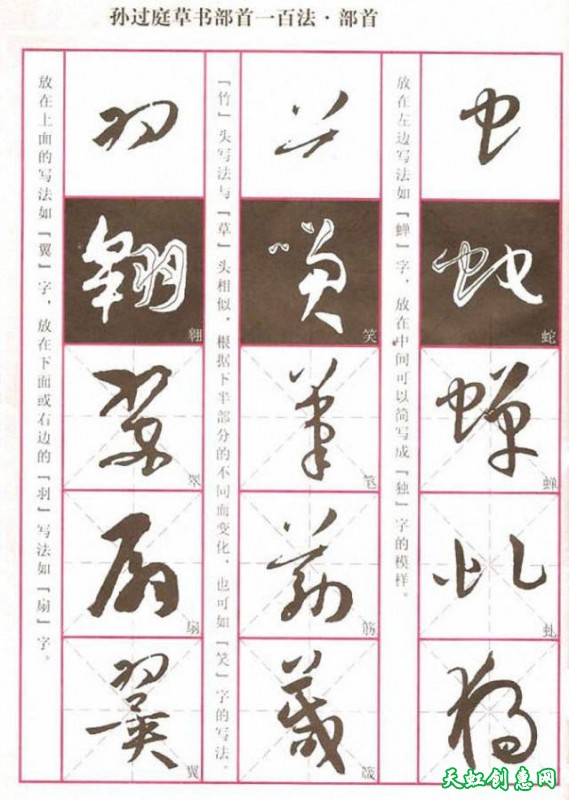 孙过庭草书部首一百法·部首
虫
蛇
蛇
蝉
蝉
虬
独
放在左边写法如「蝉」字，放在中间可以简写成「独」字的模样。
笑
笑
笔
笔
筋
筋
箴
箴
「竹」头写法与「草」头相似，根据下半部分的不同而变化，也可如「笑」字的写法。
羽
翱
翱
翠
翠
扇
扇
翼
翼
放在上面的写法如「翼」字，放在下面或右边的「羽」写法如「扇」字。
天虹创意网